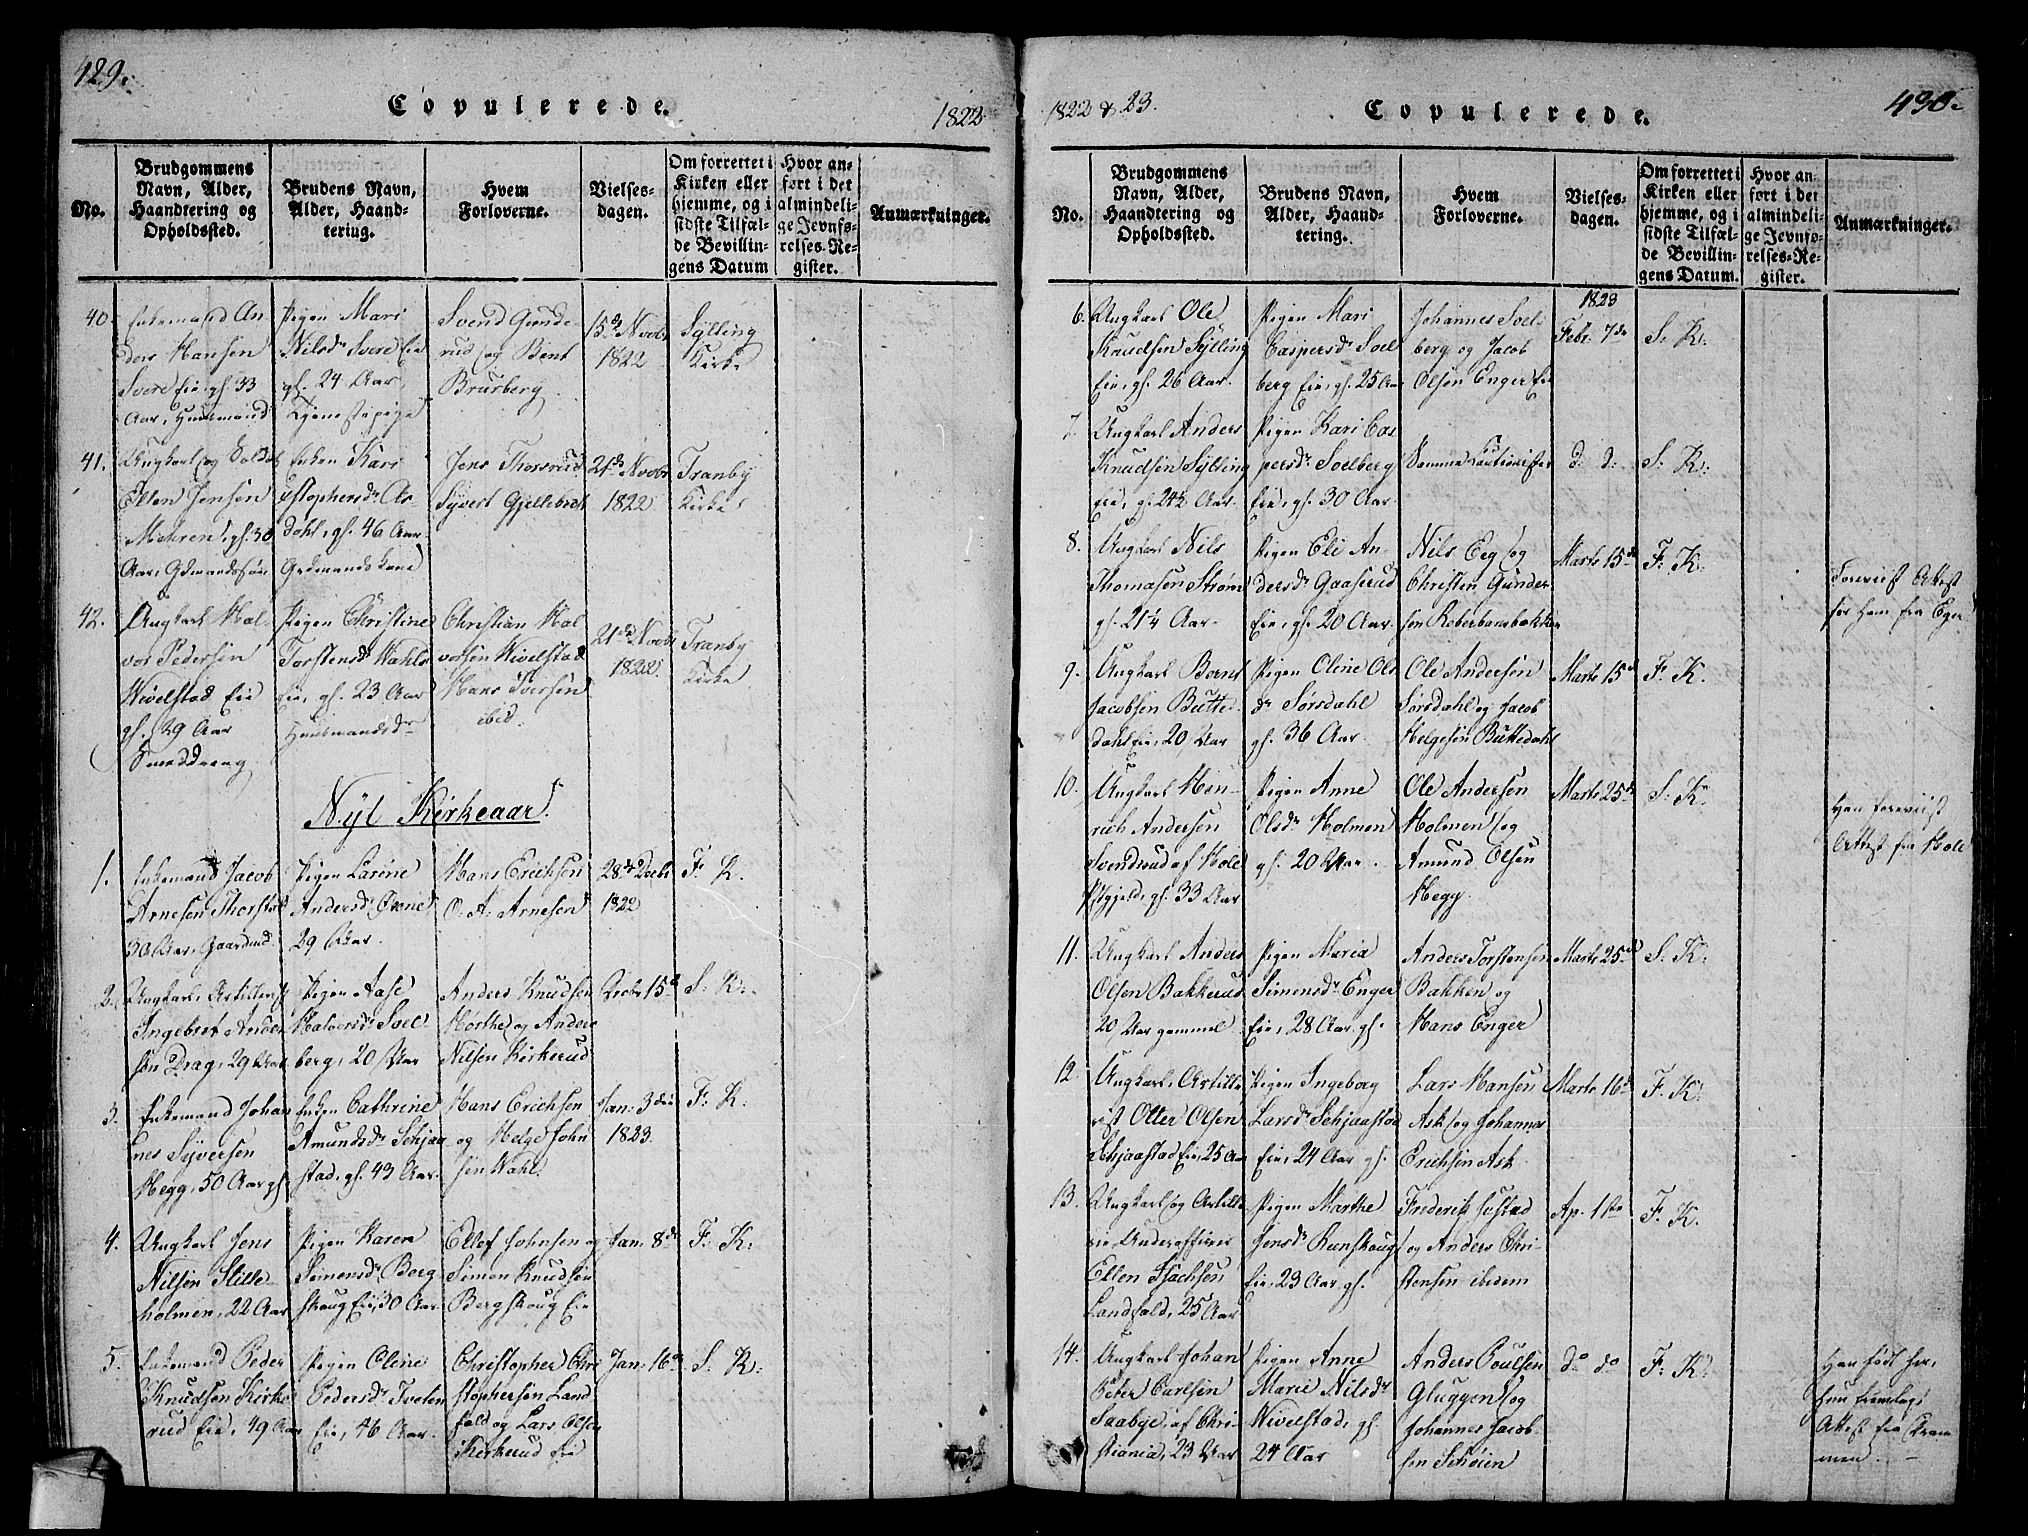 429.
Copulerede.
1822
No.
Brudgommens
Navn, Alder,
Haandtering og
Opholdssted.
Brudens Navn,
Alder, Haand-
tering.
Hvem
Forloverne.
Vielses-
dagen.
Om forrettet i
Kirken eller
hjemme, og i
sidste Tilfæl-
de Bevillin-
gens Datum
Hvor an-
ført i det
almindeli-
ge Jevnfø-
relses-Re-
gister.
Anmærkninger.
40.
Enkemand An-
ders Hansen
Svere Eie, gl. 33
Aar, Huusmand
Pigen Mari
Nilsdr Svere Eie
gl. 24 Aar,
Tjenestepige
Svend Gunde-
rud og Bent
Brusberg
15de Novbr
1822
Sylling
Kirke
41.
Ungkarl og Soldat
Ellen Jensen
Mehren, gl. 30
Aar, Gdmandssøn
Enken Kari
Xstophersdr As-
dahl, gl. 46 Aar
Grdmandskone
Jens Thorsrud
Syvert Gjellebech
21de Novbr
1822
Tranby
Kirke
42.
Ungkarl Hal-
vor Pedersen
Wivelstad Eie
gl. 29 Aar
Smeddreng
Pigen Christine
Torstensdr Wahls
Eie, gl. 23 Aar
Huusmandsdr
Christian Hal
vorsen Wivelstad
Hans Iversen
ibid.
21de Novbr
1822
Tranby
Kirke
Nyt Kirkeaar.
1.
Enkemand Jacob
Arnesen Thorstad
30 Aar, Gaardmd.
Pigen Larine
Andersdr Øvene
29 Aar.
Hans Erichsen
O. A. Arnesen
28de Decbr
1822
F. K.
2.
Ungkarl, Artillerist
Ingebret Ander
sen Drag, 29 Aar
Pigen Aase
Halvorsdr Svel
berg, 20 Aar
Anders Knudsen
Hørthe og Anders
Nilsen Kirkerud
Decbr 15de
S. K.
3.
Enkemand Johan
nes Syversen
Hegg, 50 Aar gl.
Enken Cathrine
Amundsdr Sehjaa
stad, gl. 43 Aar.
Hans Erichsen
og Helge John
sen Wahl.
Jan. 3die
1823.
F. K.
4.
Ungkarl Jens
Nilsen Stille-
holmen, 22 Aar
Pigen Karen
Simensdr Berg
skoug Eie, 30 Aar.
Ellef Johnsen og
Simon Knudsen
Bergskoug Eie
Jan. 8de
F. K.
5.
Enkemand Peder
Knudsen Kirke
rud Eie, 49 Aar
Pigen Oline
Pedersdr Tveten
Eie, 46 Aar.
Christopher Chri
stophersen Land
fald og Lars Olsen
Kirkerud Eie
Jan. 16de
S. K.
1822 & 23.
Copulerede.
430.
No.
Brudgommens
Navn, Alder,
Haandtering og
Opholdssted.
Brudens Navn,
Alder, Haand-
tering.
Hvem
Forloverne.
Vielses-
dagen.
Om forrettet i
Kirken eller
hjemme, og i
sidste Tilfæl-
de Bevillin-
gens Datum.
Hvor an-
ført i det
almindeli-
ge Jevnfø-
relses-Re-
gister.
Anmærkninger.
6.
Ungkarl Ole
Knudsen Sylling
Eie, gl. 26 Aar.
Pigen Mari
Caspersdr Svel
berg Eie, gl. 25 Aar
Johannes Svel-
berg og Jacob
Olsen Enger Eie
1823
Febr. 7de
S. K.
7.
Ungkarl Anders
Knudsen Sylling
Eie, gl. 24½ Aar.
Pigen Kari Cas
persdr Svelberg
Eie, gl. 30 Aar
Samme Cautionister
d: d:
S. K.
8.
Ungkarl Nils
Thomasen Strøm
gl. 21¼ Aar.
Pigen Eli An-
dersdr Gaaserud
Eie, gl. 20 Aar.
Nils Eeg og
Christen Gunder
sen Reberbanebakken
Marts 15de
F. K.
Foreviist Attest
for Ham fra Eger
9.
Ungkarl Bernt
Jacobsen Butte
dahl Eie, 20 Aar
Pigen Oline Ols
dr Sørsdahl
gl. 36 Aar.
Ole Andersen
Sørsdahl og Jacob
Helgesen Buttedahl
Marts 15de
F. K.
10.
Ungkarl Hen-
rich Andersen
Svendsrud af Hole
Pstgjeld, gl. 33 Aar
Pigen Anne
Olsdr Holmen
gl. 20 Aar.
Ole Andersen
Holmen og
Amund Olsen
Hegg.
Marts 25de
S. K.
Han foreviist
Attest fra Hole
11.
Ungkarl Anders
Olsen Bakkerud
20 Aar gammel
Pigen Maria
Simensdr Enger
Eie, 28 Aar gl.
Anders Torstensen
Bakken og
Hans Enger
Marts 25de
S. K.
12.
Ungkarl, Artille
rist Otter Olsen
Sehjaastad Eie, 25 Aar
Pigen Ingeborg
Larsdr Sehjaastad
Eie, 24 Aar gl.
Lars Hansen
Ask og Johannes
Erichsen Ask
Marts 16de
F. K.
13.
Ungkarl og Artille
rie Underofficier
Ellen Isachsen
Landfald, 25 Aar
Pigen Marthe
Jensdr Renskoug
Eie, 23 Aar gl.
Frederik Justad
og Anders Chri-
stensen ibidem
Ap. 1ste
F. K.
14.
Ungkarl Johan
Peter Carlsen
Saabye, af Chri-
stiania, 23 Aar
Pigen Anne
Marie Nilsdr
Wivelstad, gl.
24 Aar
Anders Poulsen
Gluggen og
Johannes Jacob-
sen Schøien
do do
F. K.
Han født her,
hun fremlagt
Attest fra Dram
men.